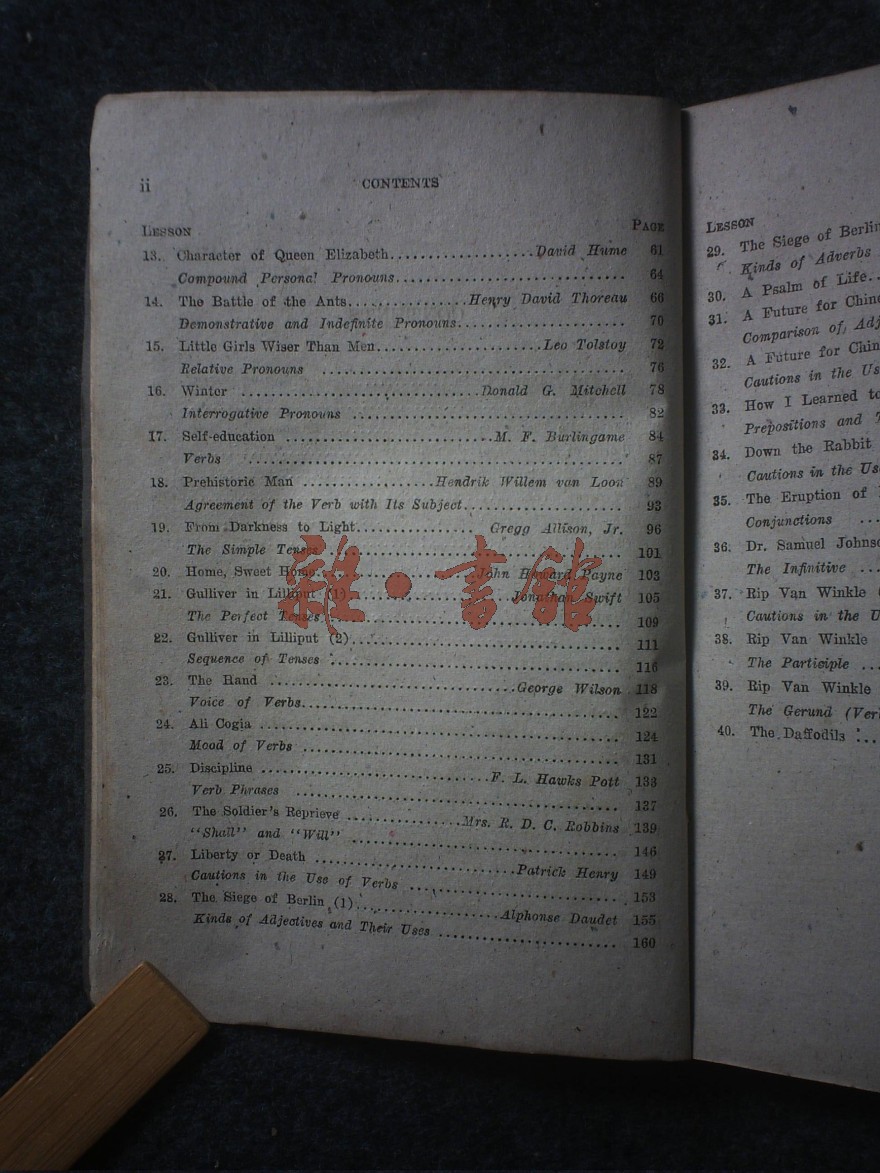 ii CONTENTS
LESSON PAGE
13. Character of Queen Elizabeth..................David Hume 61
Compound Personal Pronouns............................. 64
14. The Battle of the Ants...............Henry David Thoreau 66
Demonstrative and Indefinite Pronouns..................... 70
15. Little Girls Wiser Than Men.....................Leo Tolstoy 72
Relative Pronouns ...................................... 76
16. Winter ..............................Donald G. Mitchell 78
Interrogative Pronouns .................................. 82
17. Self-education ..........................M. F. Burlingame 84
Verbs ............................................... 87
18. Prehistoric Man .................Hendrik Willem van Loon 89
Agreement of the Verb with Its Subject.................... 93
19. From Darkness to Light............... Gregg Allison, Jr. 96
The Simple Tenses ..................................... 101
20. Home, Sweet Home....................John Howard Payne 103
21. Gulliver in Lilliput (1)....................Jonathan Swift 105
The Perfect Tenses..................................... 109
22. Gulliver in Lilliput (2)................................... 111
Sequence of Tenses ..................................... 116
23. The Hand ...............................George Wilson 118
Voice of Verbs........................................ 122
24. Ali Cogia ............................................. 124
Mood of Verbs ........................................ 131
25. Discipline .............................F. L. Hawks Pott 133
Verb Phrases ......................................... 137
26. The Soldier's Reprieve ...............Mrs. R. D. C. Robbins 139
"Shall" and "Will" ................................... 146
27. Liberty or Death .........................Patrick Henry 149
Cautions in the Use of Verbs ........................... 153
28. The Siege of Berlin (1)....................Alphonse Daudet 155
Kinds of Adjectives and Their Uses ....................... 160
LESSON
29. The Siege of Berlin
Kinds of Adverbs
30. A Psalm of Life..
31. A Future for
Comparison of
32. A Future for
Cautions in the
33. How I Learned to
Prepositions and
34. Down the Rabbit
Cautions in the
35. The Eruption of
Conjunctions ...
36. Dr. Samuel
The Infinitive ...
37. Rip Van Winkle
Cautions in the
38. Rip Van Winkle
The Participle ...
39. Rip Van Winkle
The Gerund
40. The Daffodils ...
雜·書館